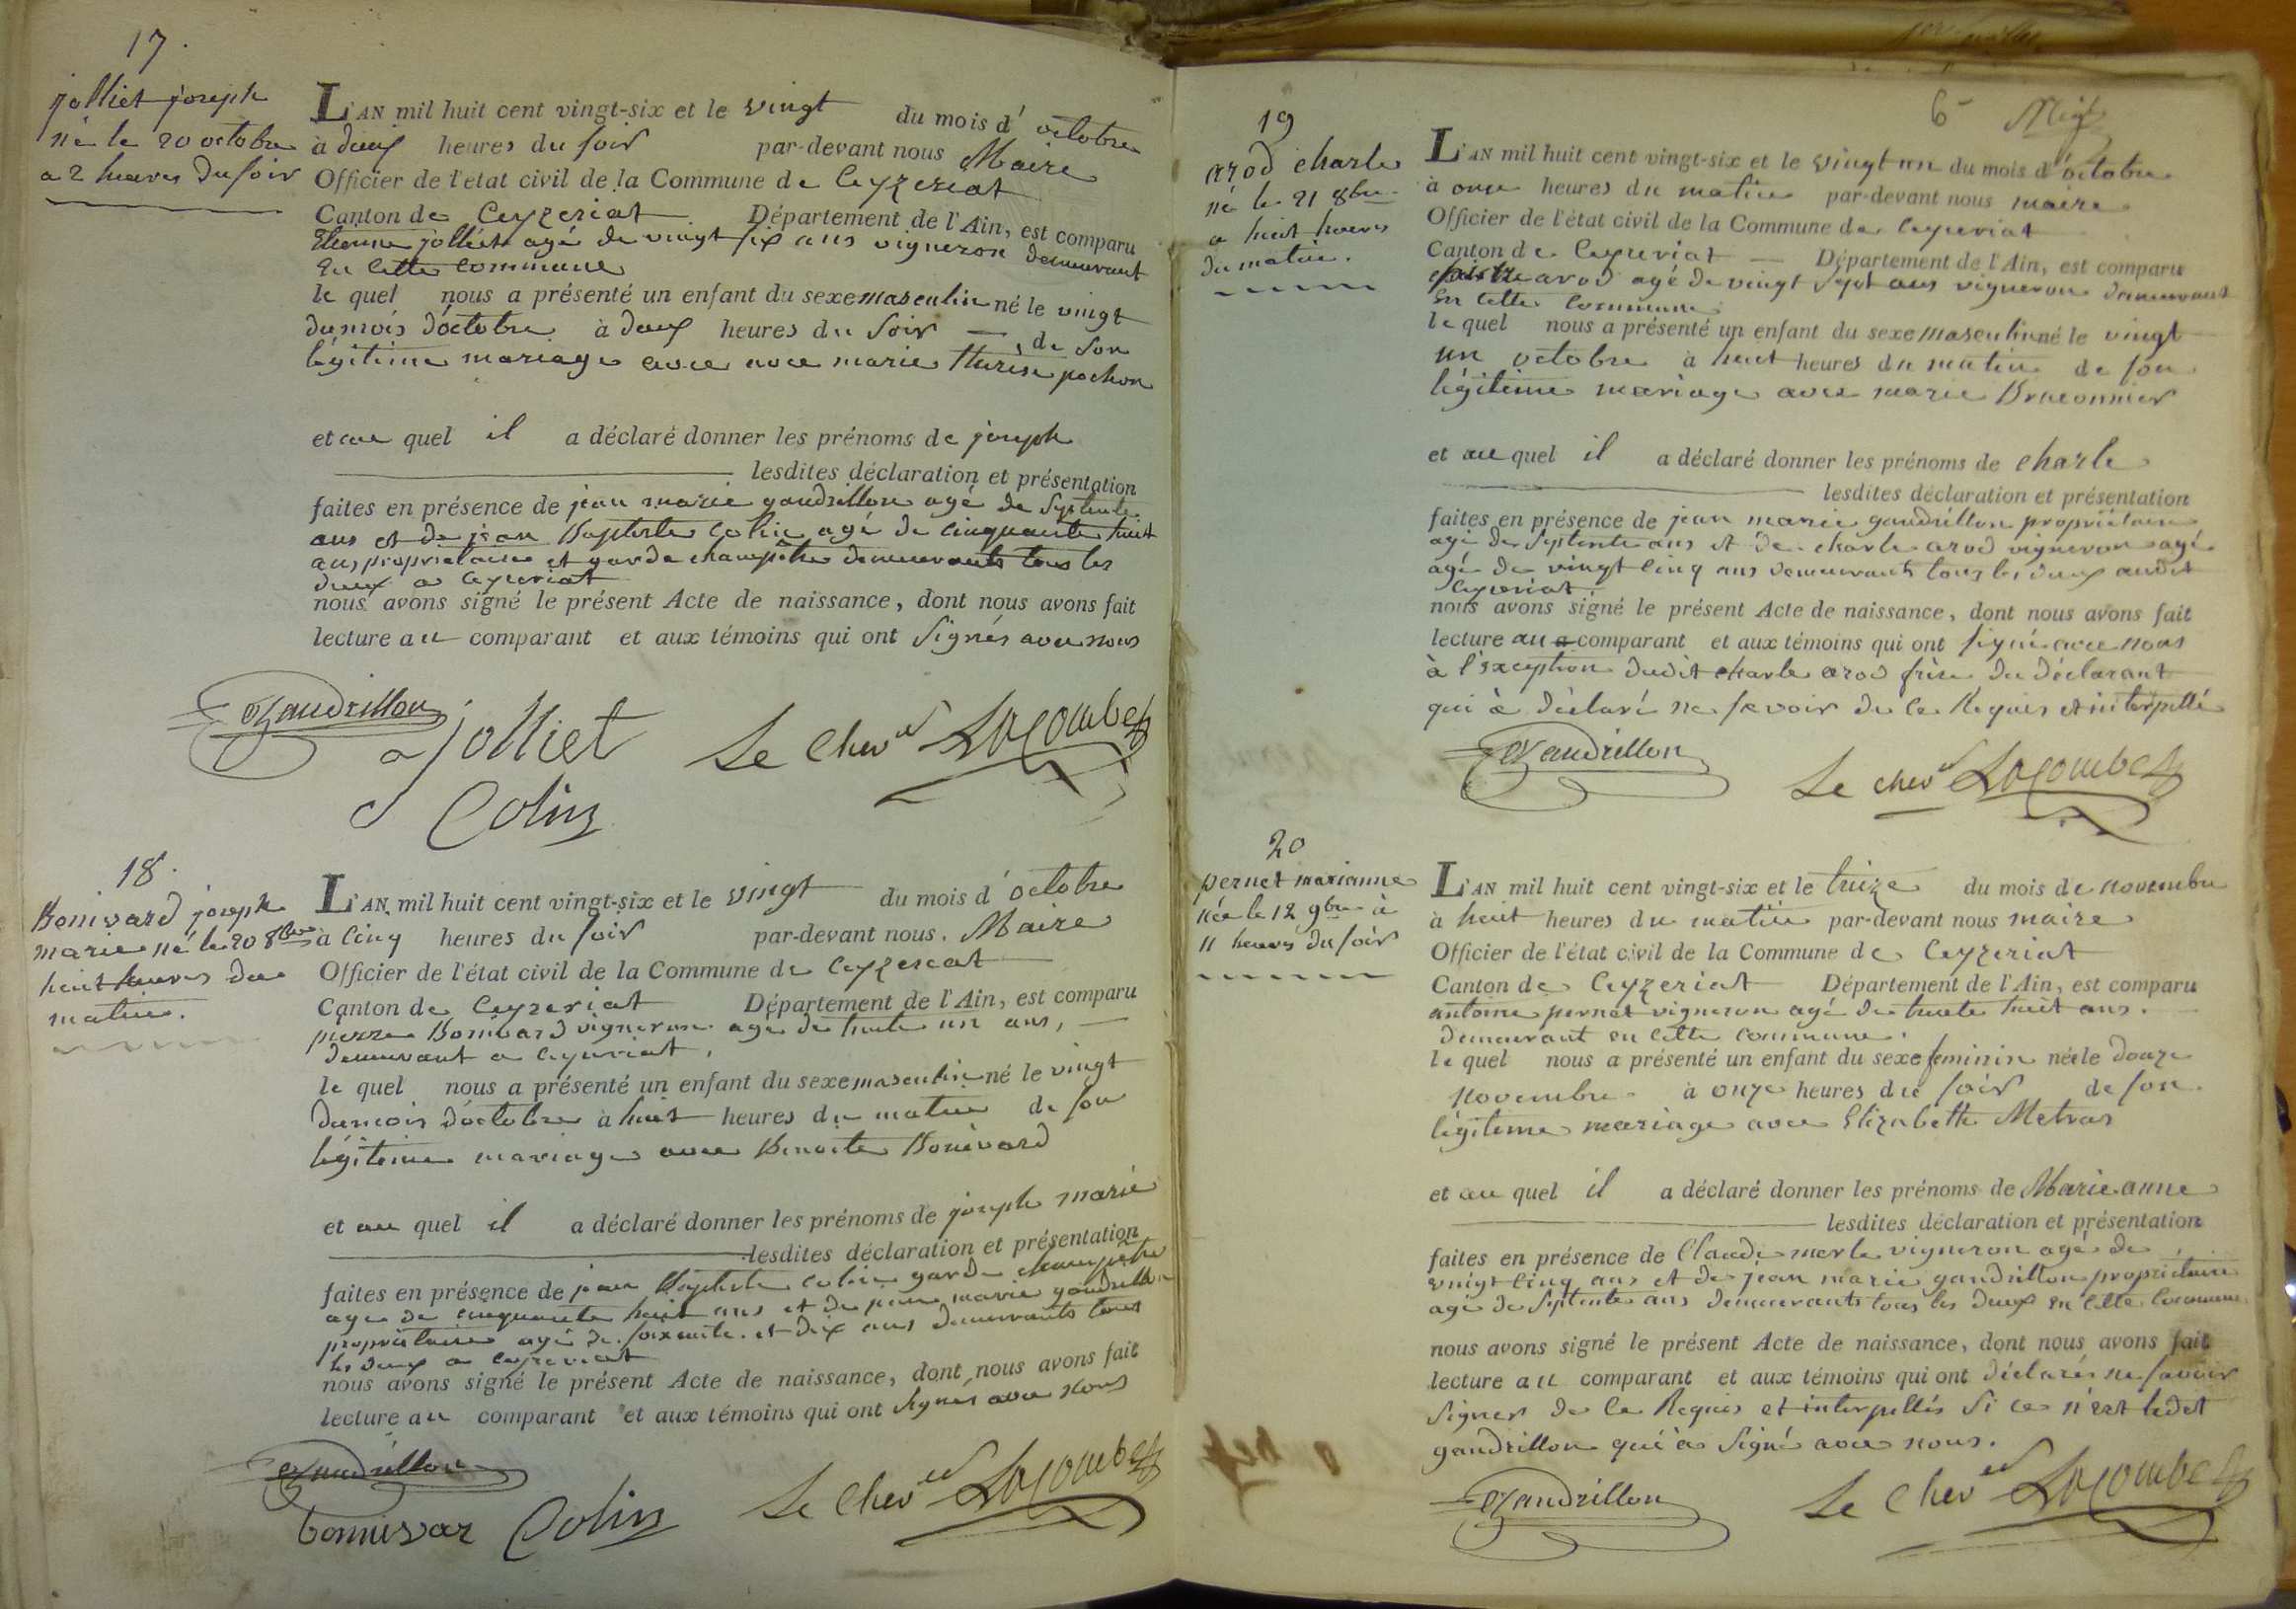 17.
jolliet joseph
né le 20 octobre
a 2 heures du soir
L'AN mil huit cent vingt-six et le vingt du mois d'octobre
à deux heures du soir par-devant nous Maire
Officier de l'etat civil de la Commune de Ceyzeriat
Canton de Ceyzeriat Département de l'Ain, est comparu
Etienne jolliet agé de vingt six ans vigneron demeurant
en cette commune
le quel nous a présenté un enfant du sexe masculin né le vingt
du mois d'octobre à deux heures du soir de son
légitime mariage avec avec marie therese pochon
et au quel il a déclaré donner les prénoms de joseph
lesdites déclaration et présentation
faites en présence de jean marie gaudrillon agé de septente
ans et de jean Baptiste colin agé de cinquante huit
ans propriétaire et garde champêtre demeurants tous les
deux a ceyzeriat
nous avons signé le présent Acte de naissance, dont nous avons fait
lecture au comparant et aux témoins qui ont signés avec nous
Gaudrillon
jolliet
Le Chev Lacombe
Colin
18.
Bonivard joseph
marie né le 20 8bre
huit heures du
matin.
L'AN mil huit cent vingt-six et le vingt du mois d'octobre
à cinq heures du soir par-devant nous. Maire
Officier de l'état civil de la Commune de Ceyzeriat
Canton de Ceyzeriat Département de l'Ain, est comparu
pierre Bonivard vigneron agé de trente un ans,
demeurant a ceyzeriat,
le quel nous a présenté un enfant du sexe masculin né le vingt
du mois d'octobre à huit heures du matin de son
légitime mariage avec Benoite Bonivard
et au quel il a déclaré donner les prénoms de joseph marie
lesdites déclaration et présentation
faites en présence de jean Baptiste colin garde champêtre
agé de cinquante huit ans et de jean marie gaudrillon
propriétaire agé de soixante et dix ans demeurants tous
les deux a ceyzeriat
nous avons signé le présent Acte de naissance, dont nous avons fait
lecture au comparant et aux témoins qui ont signés avec nous
Gaudrillon
bonnivar Colin Le Chev Lacombe
6
19
arod charle
né le 21 8bre
a huit heures
du matin.
L'AN mil huit cent vingt-six et le vingt un du mois d'octobre
à onze heures du matin par-devant nous maire
Officier de l'état civil de la Commune de Ceyzeriat
Canton de Ceyzeriat Département de l'Ain, est comparu
arod agé de vingt sept ans vigneron demeurant
en cette commune
le quel nous a présenté un enfant du sexe masculin né le vingt
un octobre à huit heures du matin de son
légitime mariage avec marie Braconnier
et au quel il a déclaré donner les prénoms de charle
lesdites déclaration et présentation
faites en présence de jean marie gaudrillon propriétaire
agé de septente ans et de charle arod vigneron agé
agé de vingt cinq ans demeurants tous les deux audit
Ceyzeriat
nous avons signé le présent Acte de naissance, dont nous avons fait
lecture au comparant et aux témoins qui ont signé avec nous
à l'exception dudit charle arod frère du déclarant
qui à déclaré ne savoir de ce Requis et interpellé
Gaudrillon
Le chev Lacombe
20
pernet marianne
née le 12 9bre à
11 heures du soir
L'AN mil huit cent vingt-six et le treize du mois de novembre
à huit heures du matin par-devant nous maire
Officier de l'état civil de la Commune de Ceyzeriat
Canton de Ceyzeriat Département de l'Ain, est comparu
antoine pernet vigneron agé de trente huit ans.
demeurant en cette commune.
le quel nous a présenté un enfant du sexe feminin née le douze
novembre à onze heures du soir de son
légitime mariage avec Elizabette Metras
et au quel il a déclaré donner les prénoms de Marie anne
lesdites déclaration et présentation
faites en présence de Claude merle vigneron agé de
vingt cinq ans et de jean marie gaudrillon propriétaire
agé de septente ans demeurants tous les deux en cette commune
nous avons signé le présent Acte de naissance, dont nous avons fait
lecture au comparant et aux témoins qui ont déclarés ne savoir
signer de ce Requis et interpellés si ce n'est ledit
gaudrillon qui a signé avec nous.
Gaudrillon
Le Chev Lacombe